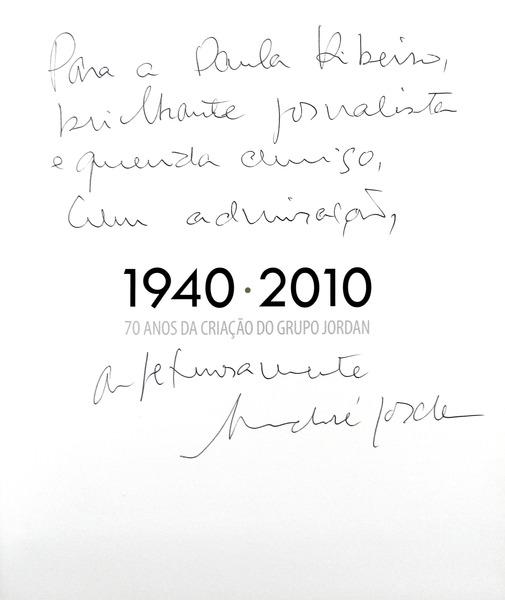 Para a Paula Ribeiro,
brilhante jornalista
e querida amiga,
com admiração,
1940 · 2010
70 ANOS DA CRIAÇÃO DO GRUPO JORDAN
afetuosamente
André Jordan